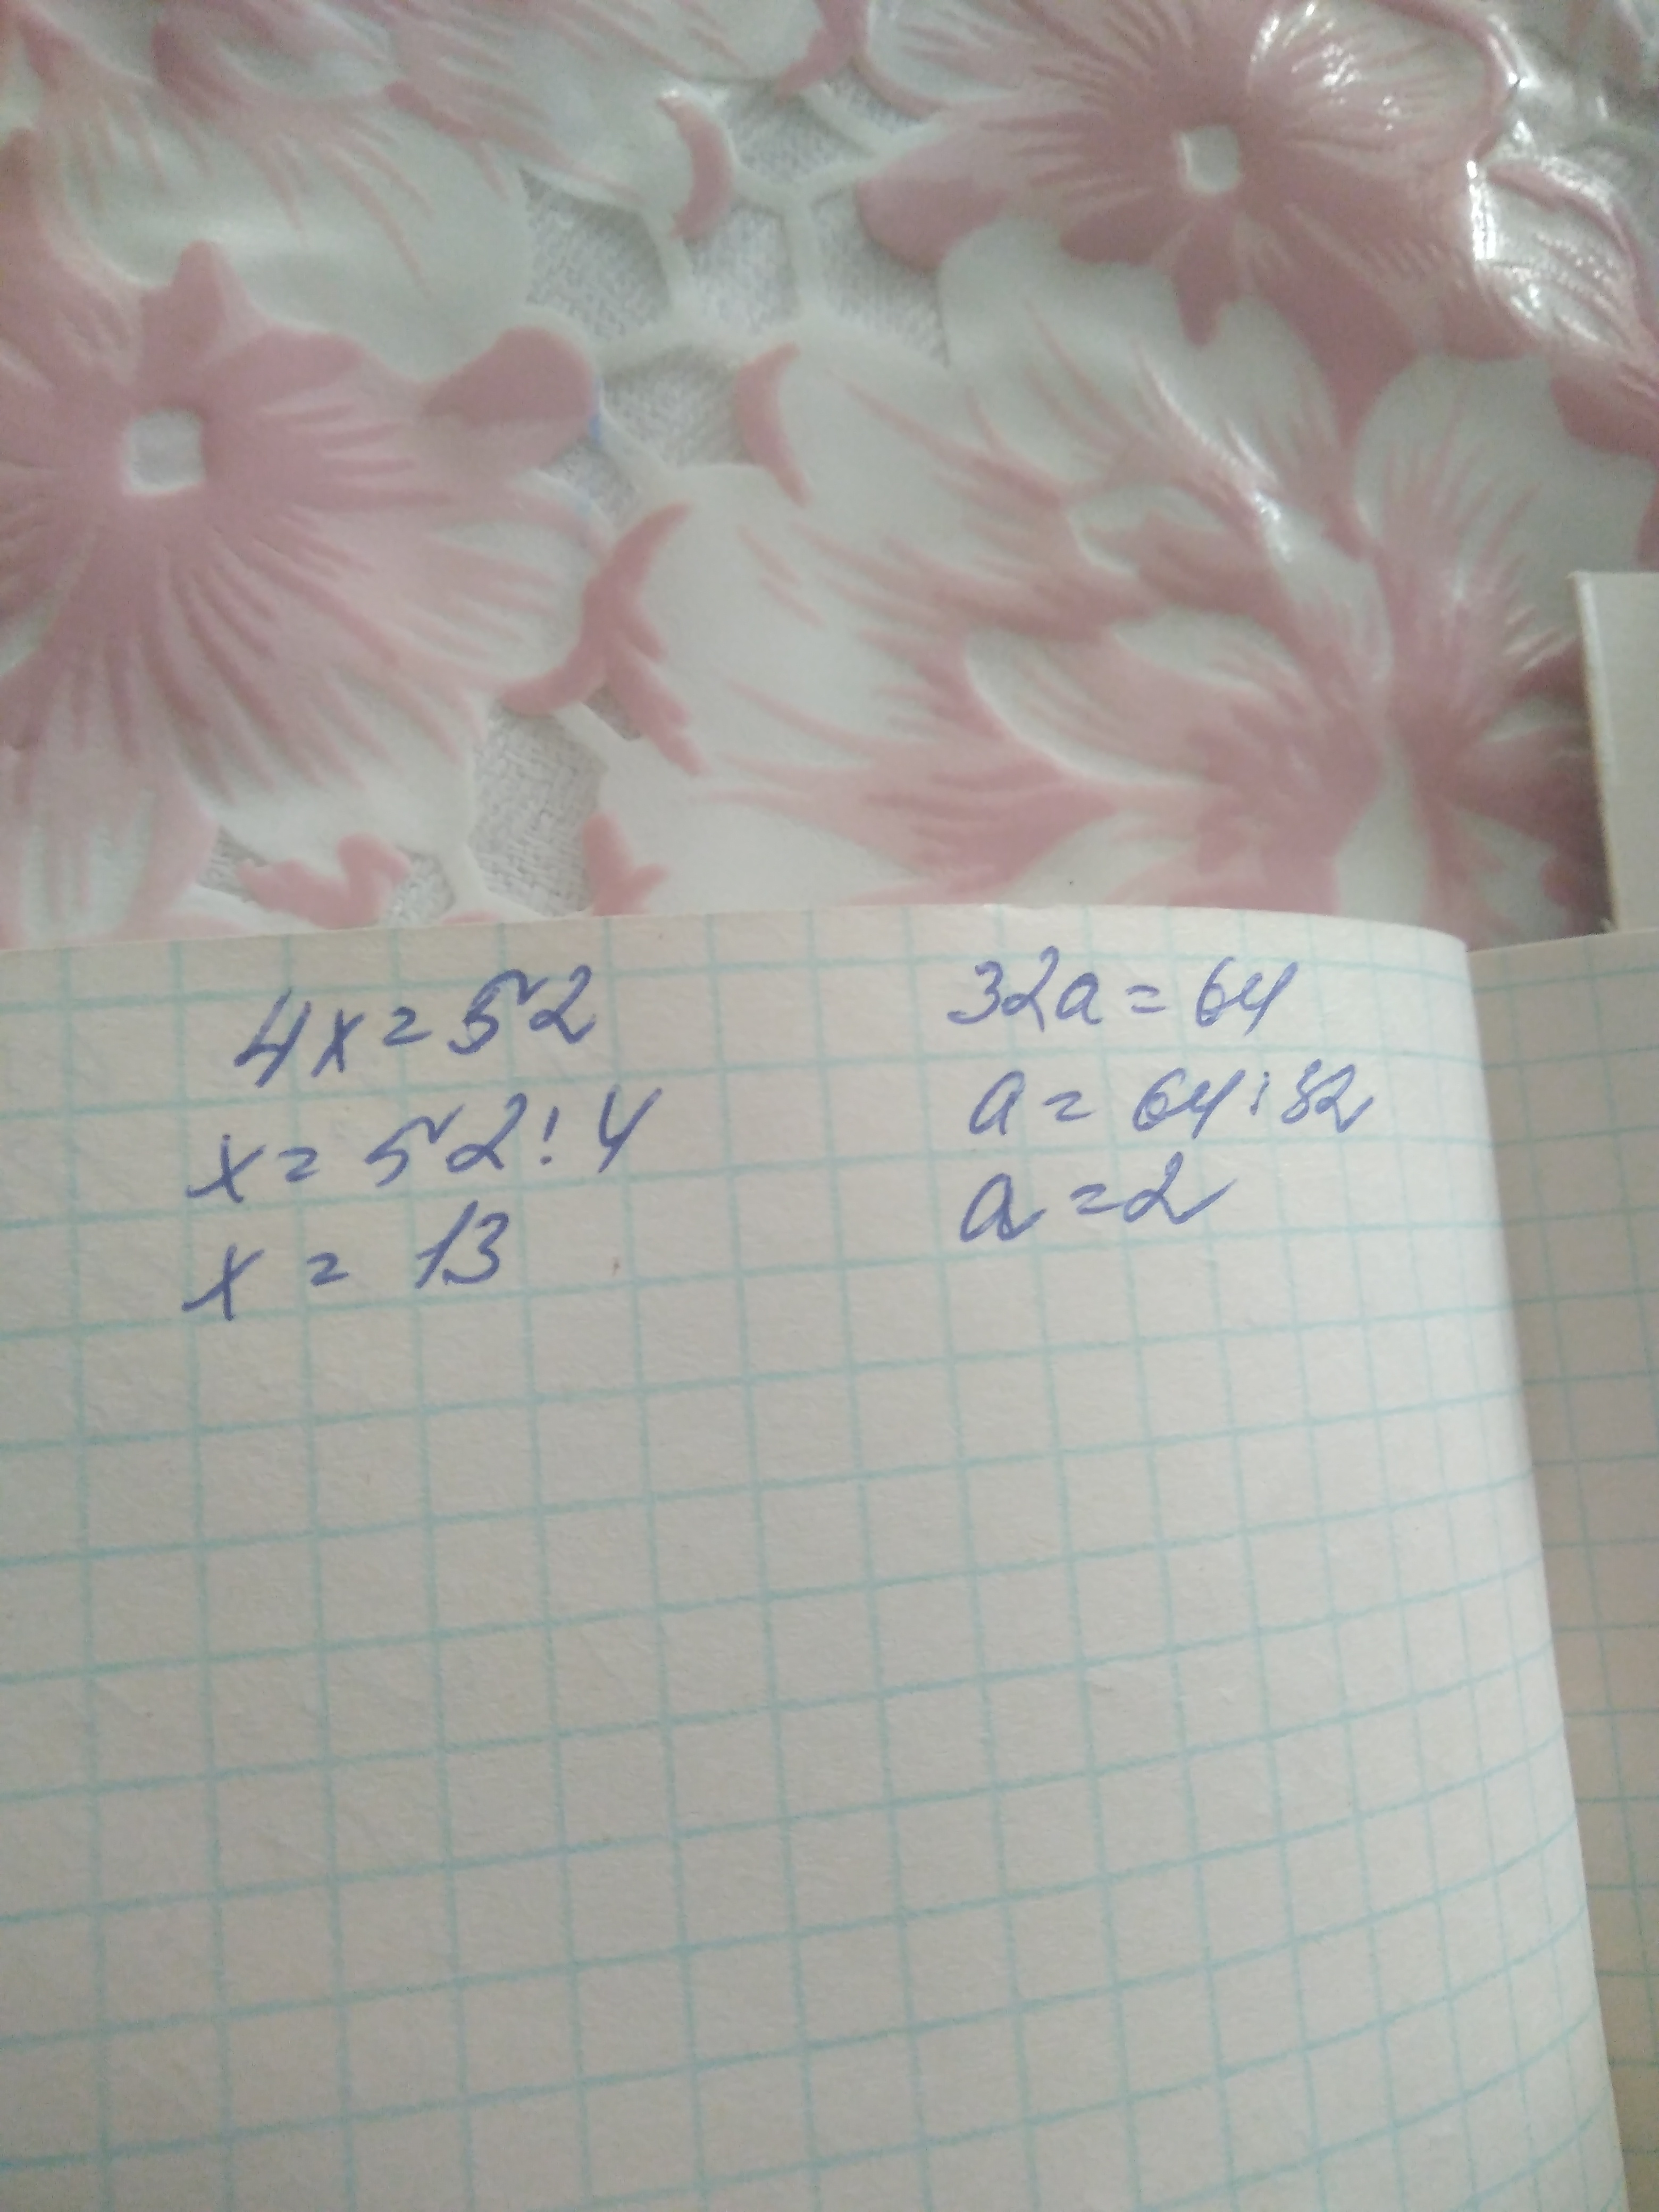 4x=52
x=52:4
x=13
32a=64
a=64:32
a=2